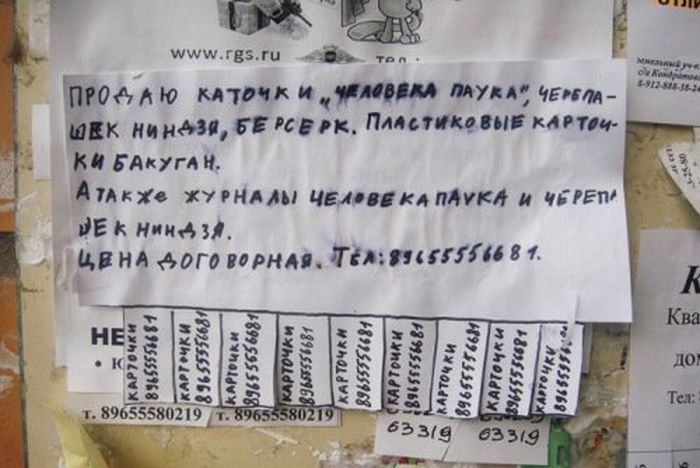 www.rgs.ru
тел.:
ОТЛИ
8-912-888-38-24
ПРОДАЮ КАТОЧКИ „ЧЕЛОВЕКА ПАУКА", ЧЕРЕПА-
ШЕК НИНДЗЯ, БЕРСЕРК. ПЛАСТИКОВЫЕ КАРТОЧ-
КИ БАКУГАН.
А ТАКЖЕ ЖУРНАЛЫ ЧЕЛОВЕКА ПАУКА И ЧЕРЕПА
ШЕК НИНДЗЯ.
ЦЕНА ДОГОВОРНАЯ. ТЕЛ: 89655556681.
КАРТОЧКИ 89655556681
КАРТОЧКИ 89655556681
КАРТОЧКИ 89655556681
КАРТОЧКИ 89655556681
КАРТОЧКИ 89655556681
КАРТОЧКИ 89655556681
КАРТОЧКИ 89655556681
КАРТОЧКИ 89655556681
КАРТОЧКИ
НЕ
т. 89655580219
т. 89655580219
63319
63319
К
Ква
дом
Тел: